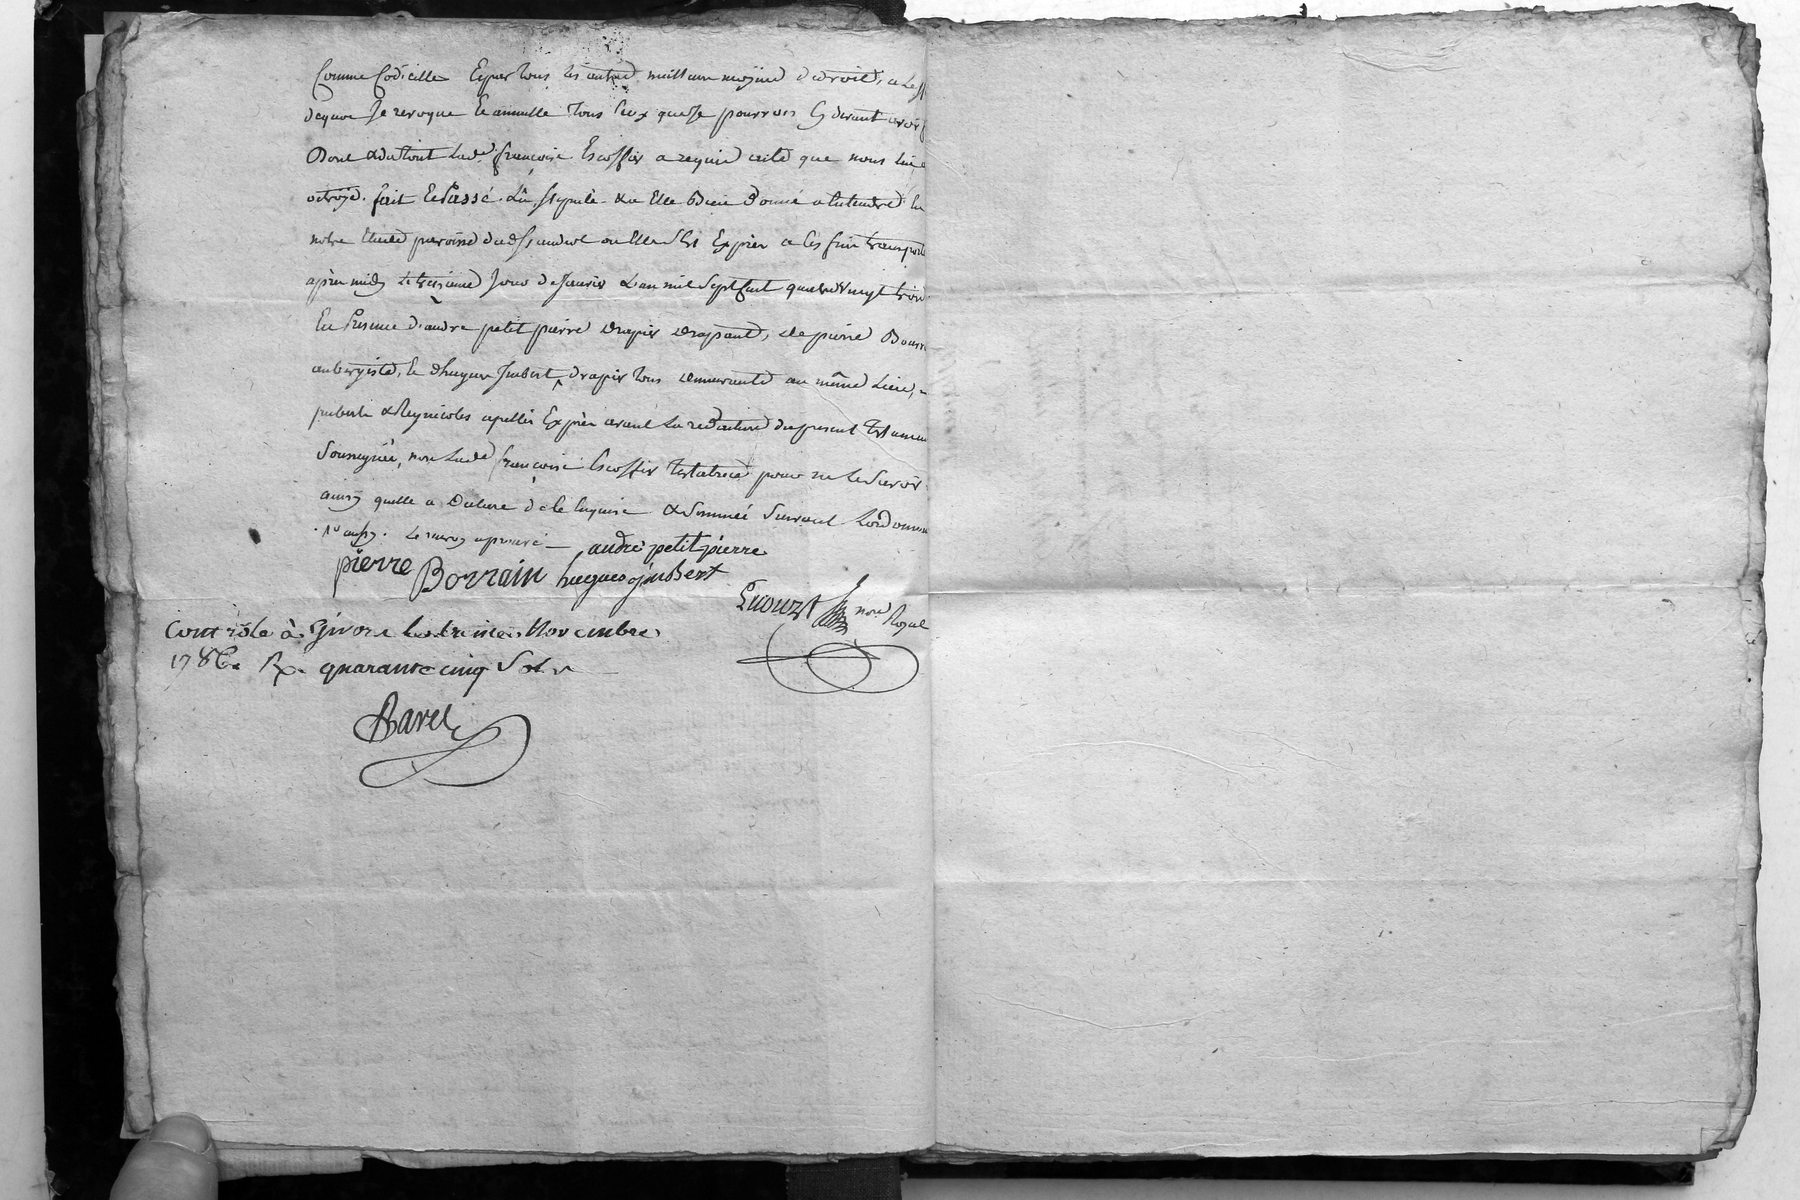 Comme Codicille Et par tous les autres meilleurs moyens de droit, a l'eff
de quoi Je revoque Et annulle Tous ceux que Je pourrois Cy devant avoir
Dont & du tout Lade françoise Escoffier a requis acte que nous lui
octroyé. fait Et Passé. Lû, stipulé & a Elle Bien Donné a Entendre En
notre Etude paroisse dud st andeol ou Elle s'est Exprès a ces fins transporté
après midy Le treisieme Jour de Janvier L'an mil Sept Cent quatre vingt trois
En Presence d'andré petit pierre drapier drapant, de pierre Bourr
aubergiste, Et d'hugues Jmbert ^ drapier tous demeurants au même Lieu,
puberts & Regnicoles apellés Exprès avant La redaction du present Testamen
Soussignés, non Lade françoise Escoffier Testatrice pour ne le Savoir
ainsy quelle a Declaré de ce Enquise & Sommée Suivant Lordonnan
Le renvoy aprouvé — andré petit pierre
pierre Borrain hugues jmbert
nore Royal
Controlé à Givors le treize Novembre
1786. Rx. quarante cinq Sols
Barel